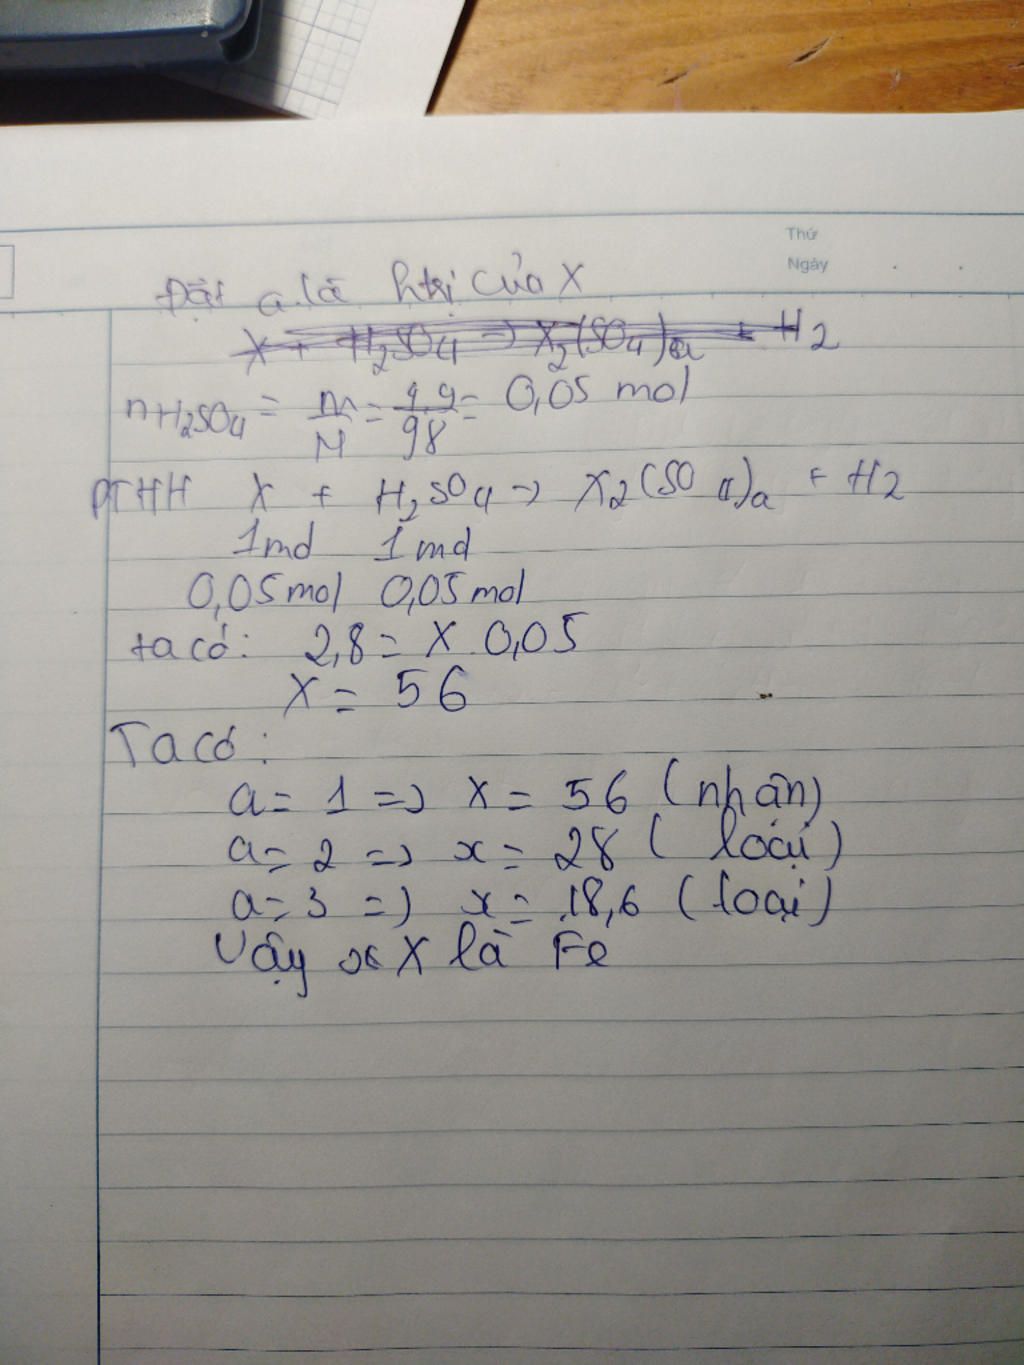 Thứ
Ngày
Đặt a là htrị của X
X + H2SO4 -> X2(SO4)a + H2
nH2SO4 = m/M = 4,9/98 = 0,05 mol
PTHH X + H2SO4 -> X2(SO4)a + H2
1mol 1mol
0,05mol 0,05mol
ta có: 2,8 = X . 0,05
X = 56
Ta có:
a = 1 => X = 56 (nhận)
a = 2 => x = 28 (loại)
a = 3 => x = 18,6 (loại)
Vậy X là Fe